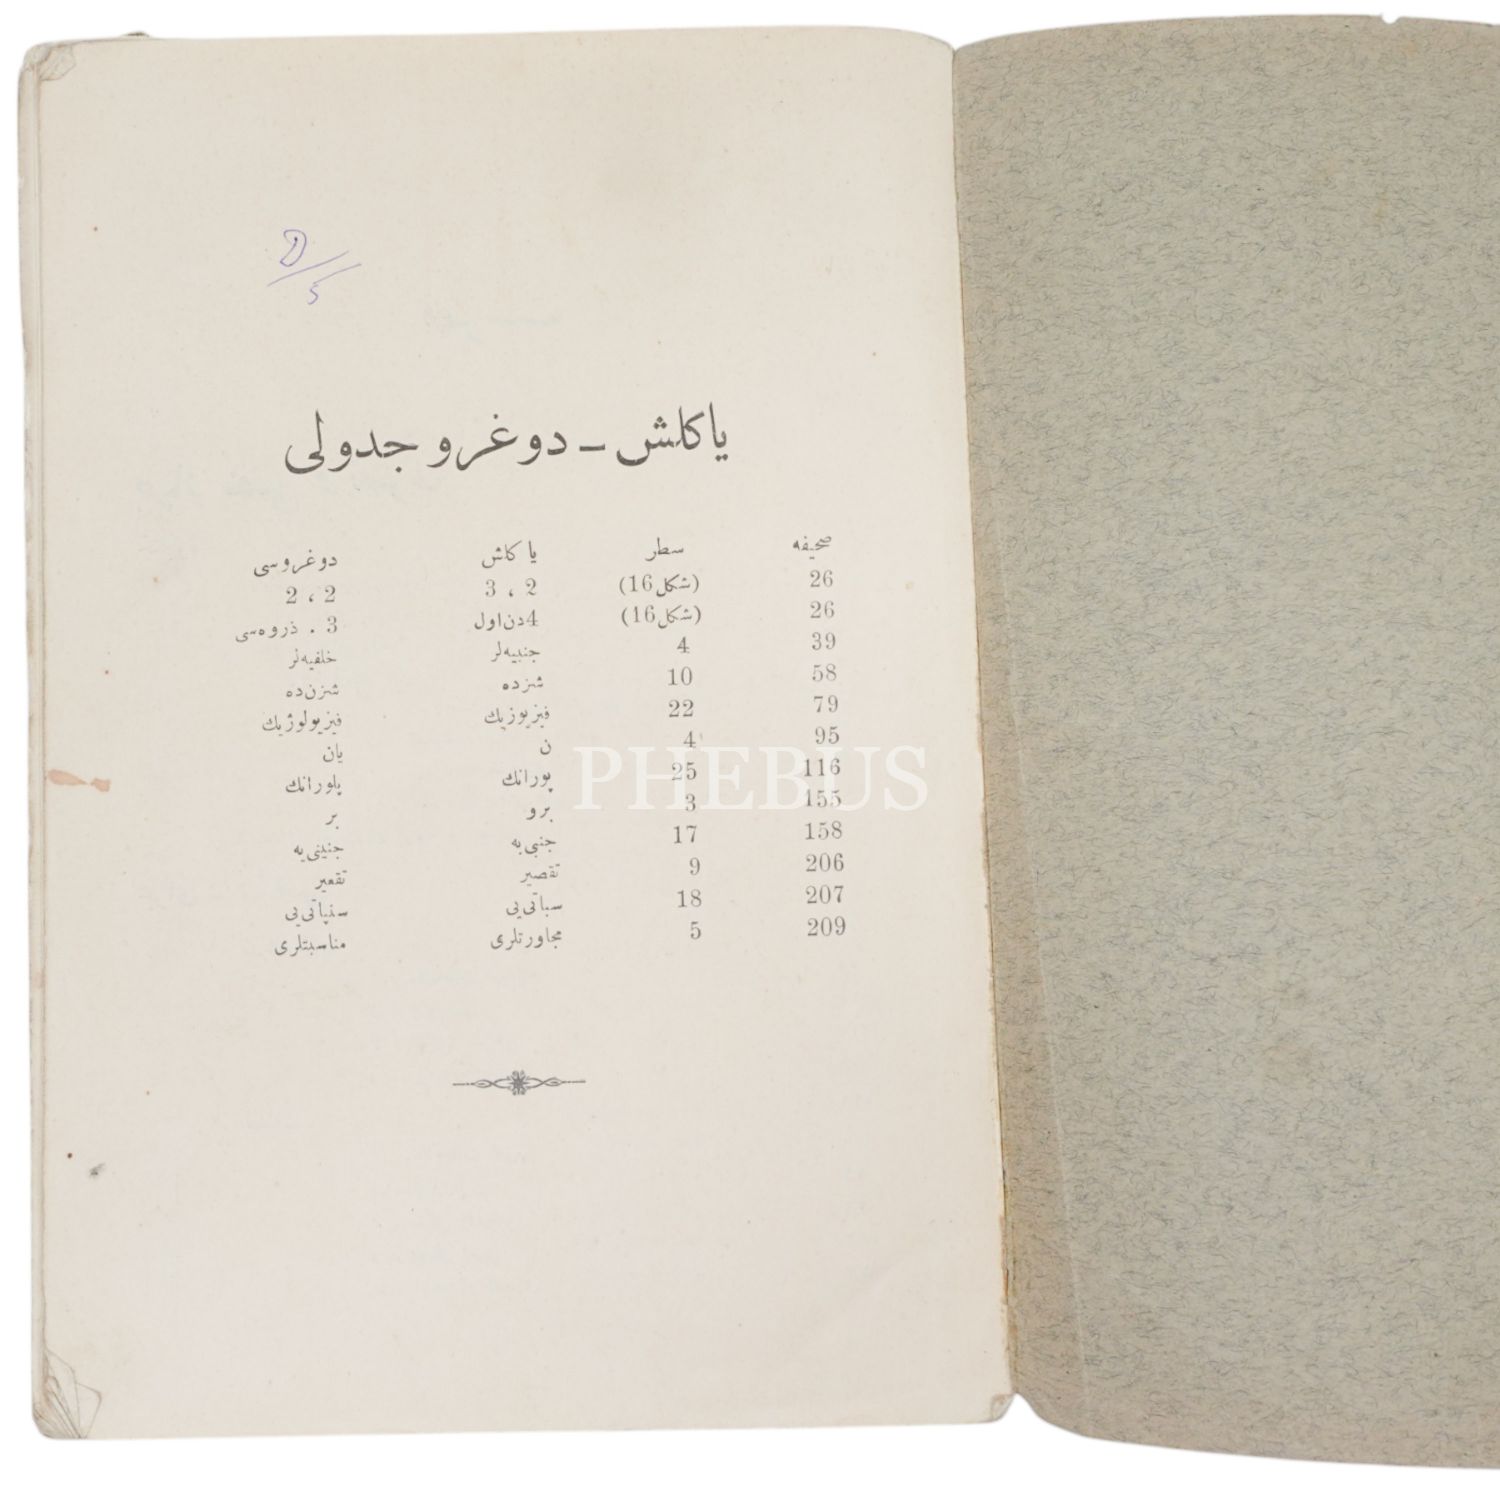 یاكلش - دوغرو جدولی
صحیفه سطر یاكلش دوغروسی
26 (شكل 16) 2 ، 3 2 ، 2
26 (شكل 16) 4 دن اول 3 . ذروه‌سی
39 4 جنبیه‌لر خلفیه‌لر
58 10 شزده شزن‌ده
79 22 فیزیوزیك فیزیولوژیك
95 4 ن یان
116 25 پورانك پلورانك
155 3 برو بر
158 17 جنبی‌یه جنینی‌یه
206 9 تقصیر تقعیر
207 18 سباتی‌یی سنپاتی‌یی
209 5 مجاورتلری مناسبتلری
PHEBUS